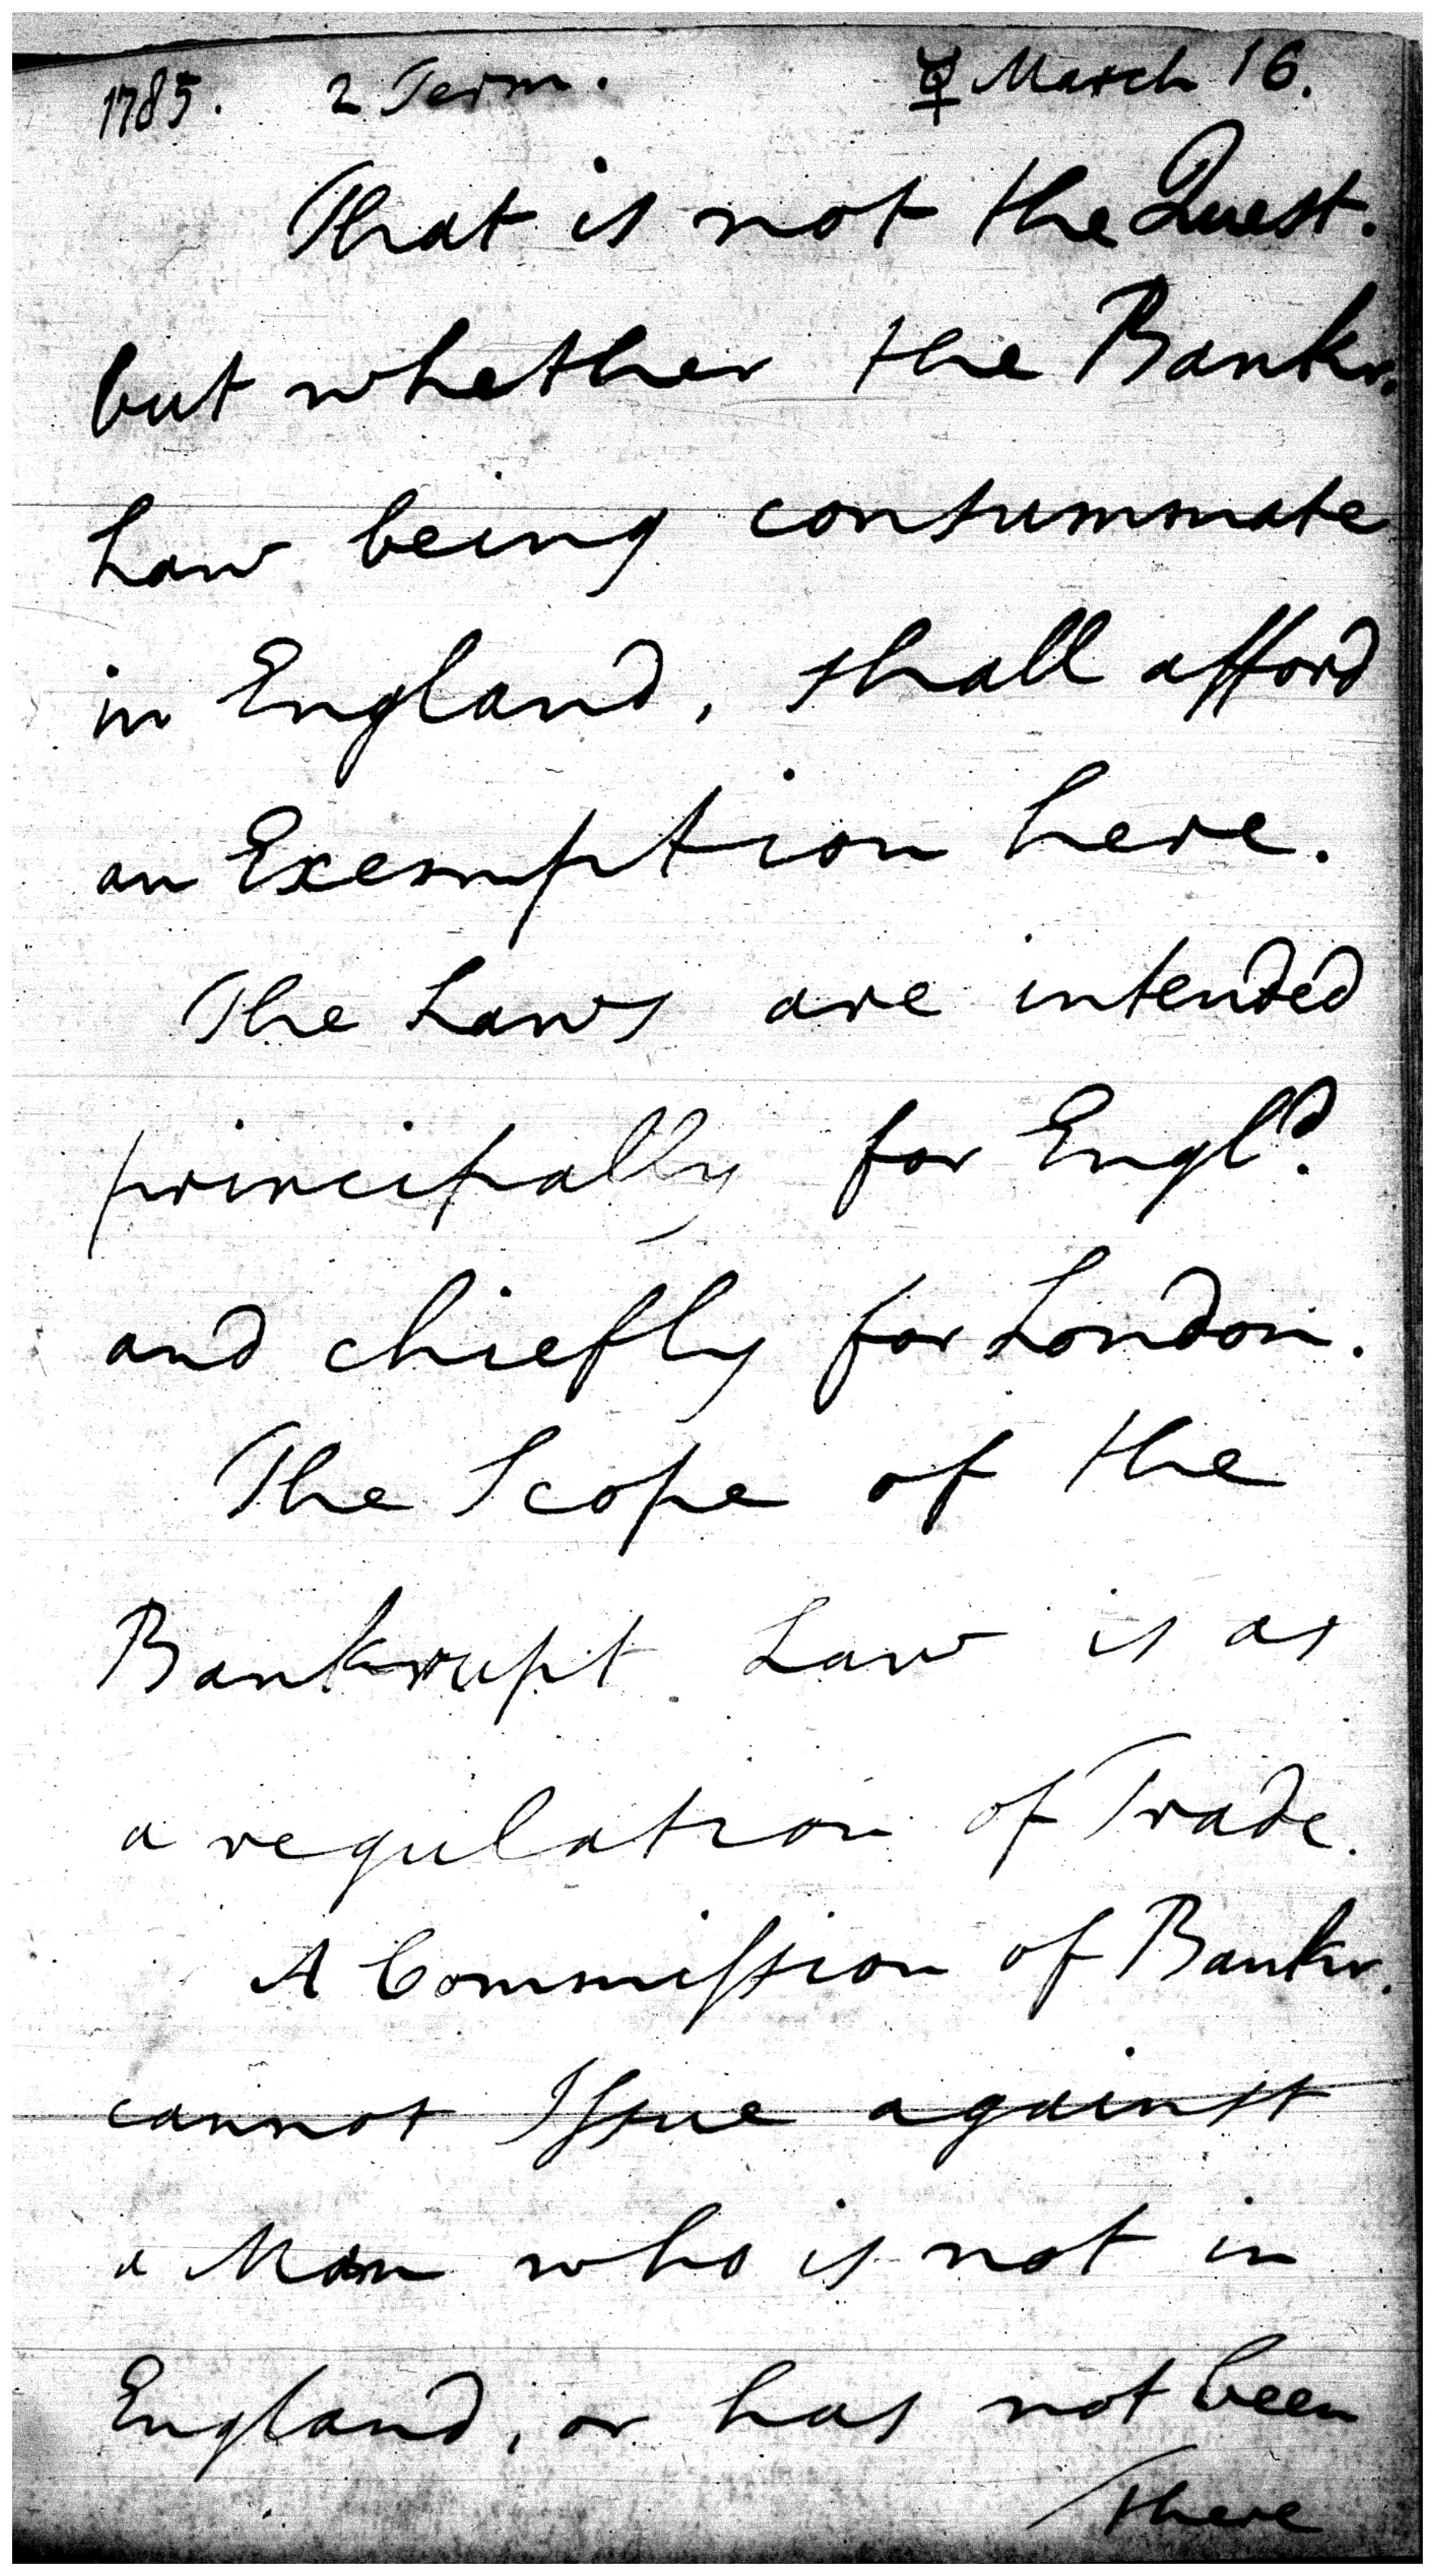 1785. 2 Term. ☿ March 16.
That is not the Quest.
but whether the Bankr.
Law being consummate
in England, shall afford
an Exemption here.
The Laws are intended
principally for Engld.
and chiefly for London.
The Scope of the
Bankrupt Law is as
a regulation of Trade.
A Commission of Bankr.
cannot Issue against
a Man who is not in
England, or has not been
There